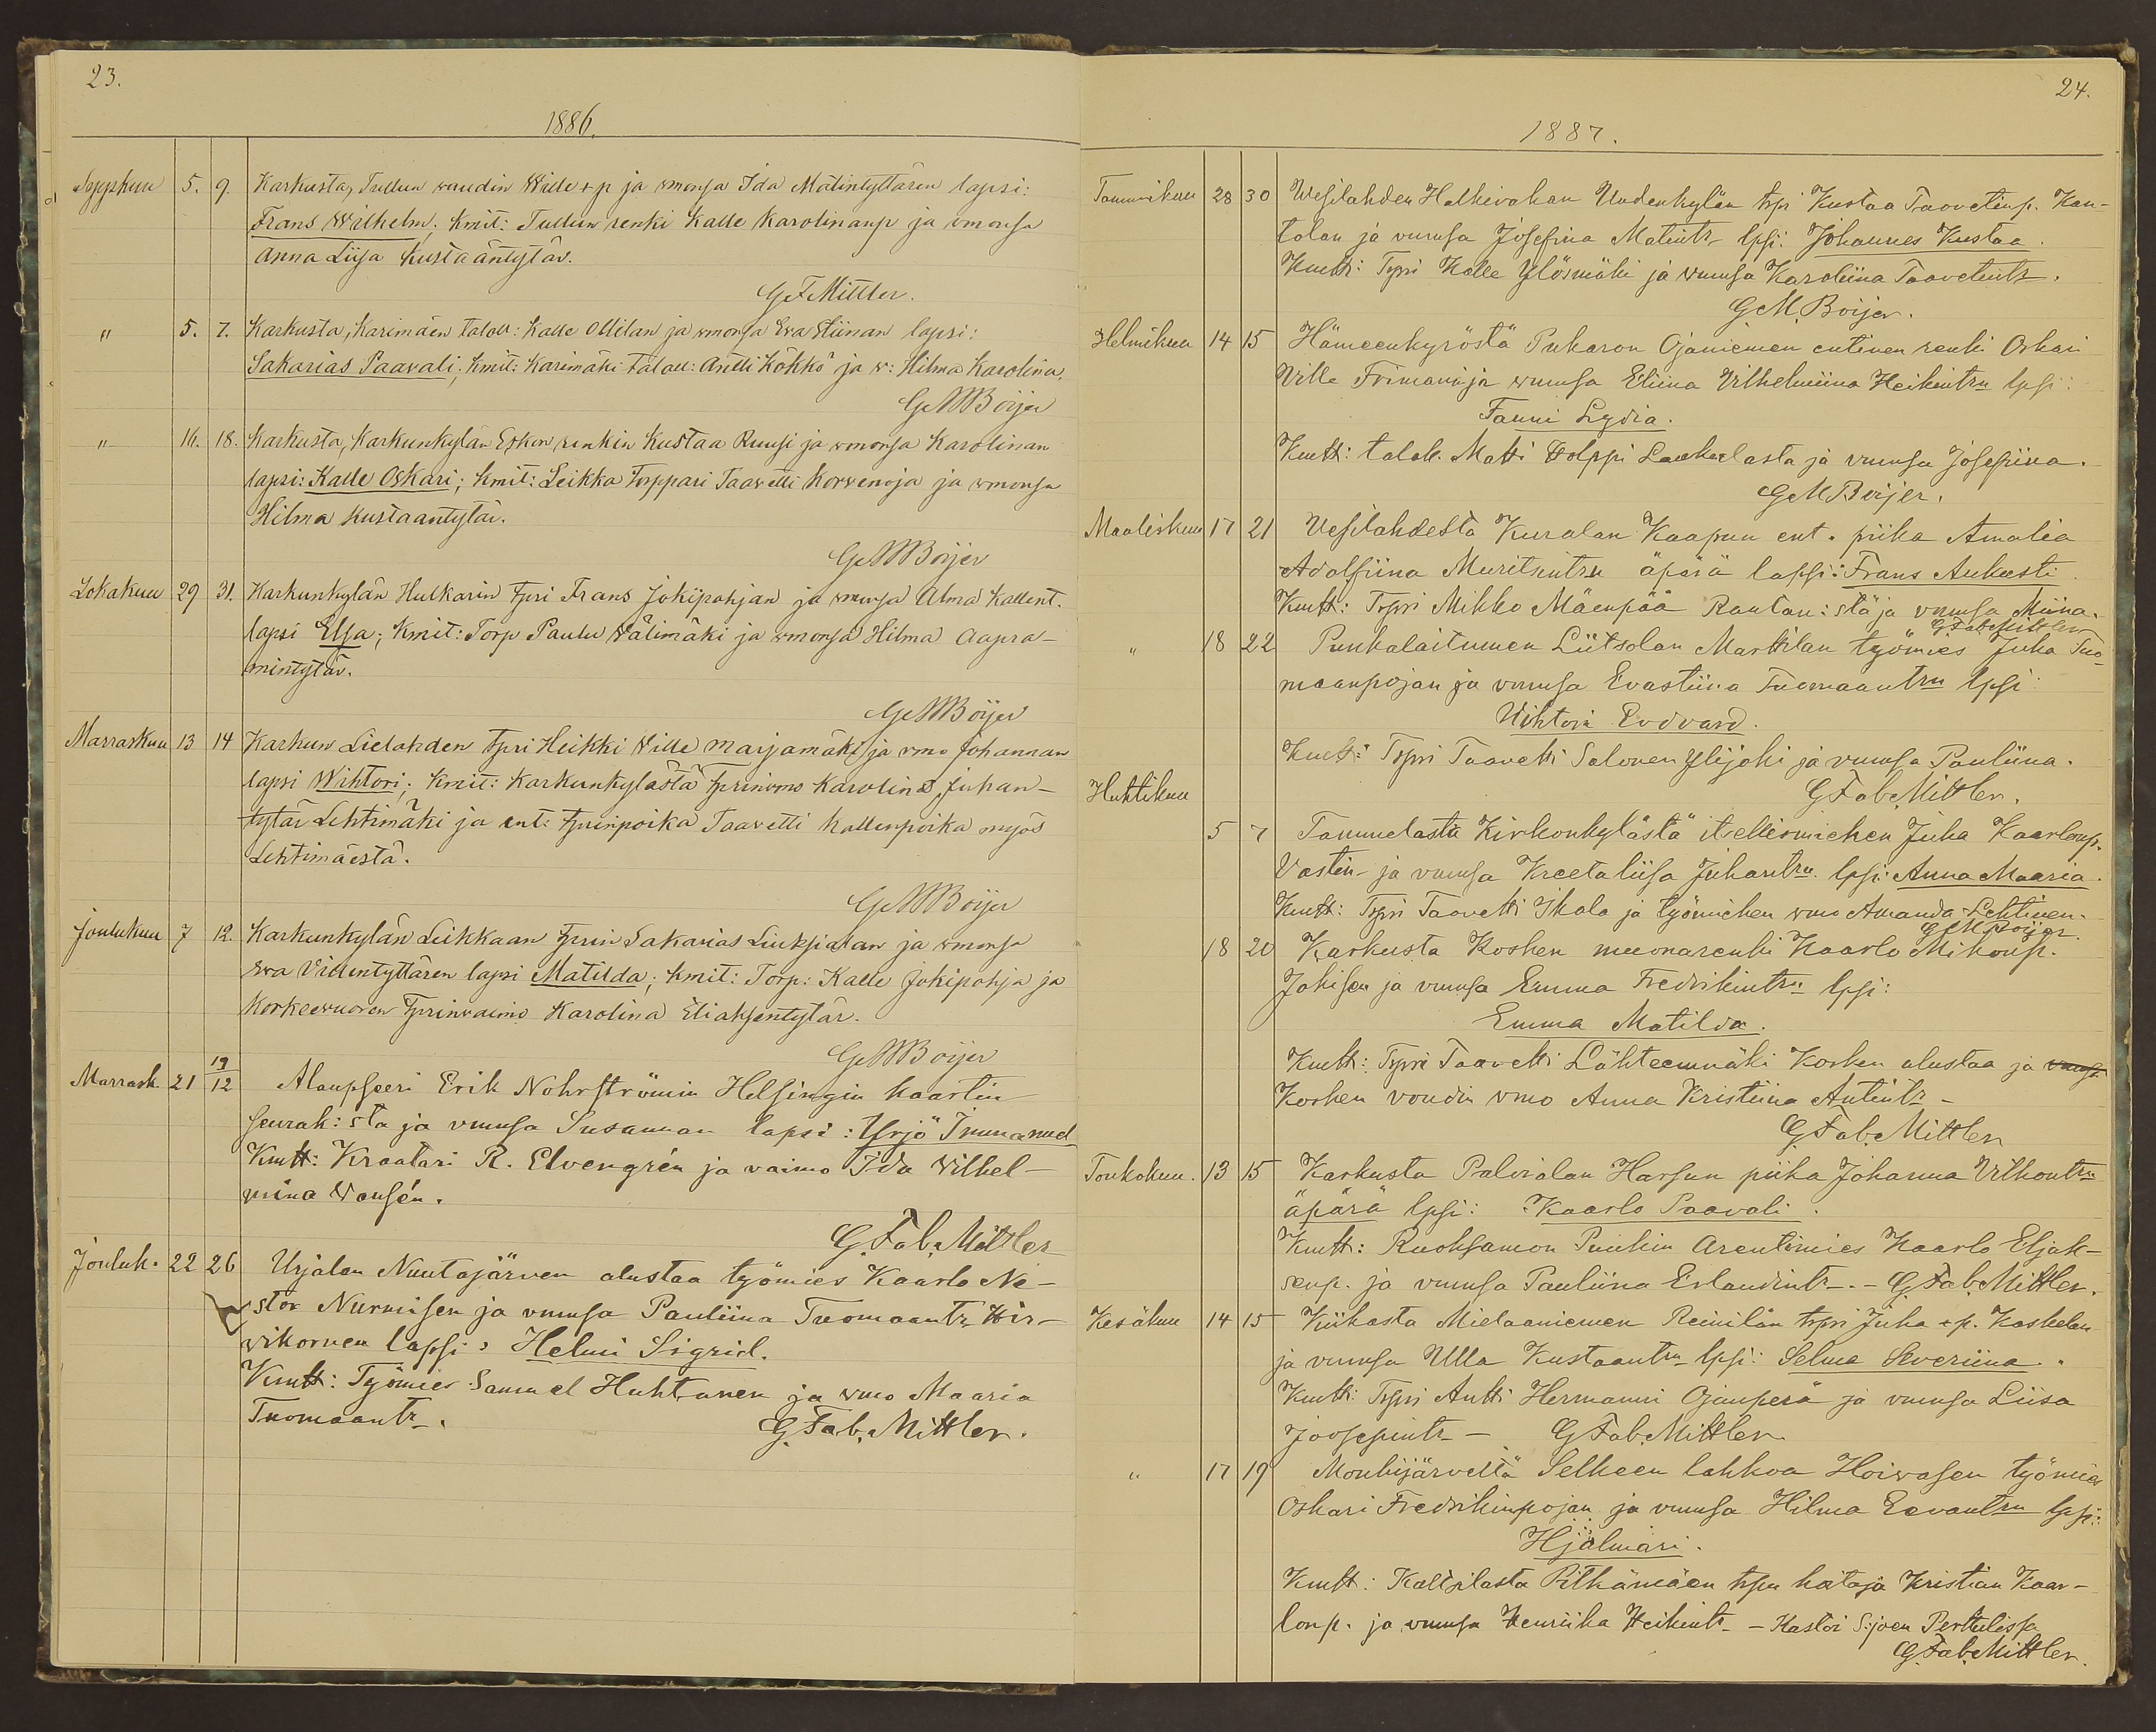 23.
1886.
Syyskuu 5. 9. Karkusta, Tullun voudin Wille +p ja vmonsa Ida Matintyttären lapsi:
Frans Wilhelm; kmit: Tullun renki Kalle Karolinanp ja vmonsa
Anna Liisa Kustaantytär.
G F Mittler.
" 5. 7. Karkusta, Karimäen taloll: Kalle Ollilan ja vmonsa Eva Stiinan lapsi:
Sakarias Paavali; kmit: Karimäki taloll: Antti Kokko ja w: Hilma Karolina.
G M Boijer
" 16. 18. Karkusta, Karkunkylän Eskon renkin Kustaa Ruusi ja vmonsa Karolinan
lapsi: Kalle Oskari; kmit: Leikka Torppari Taavetti Korvenoja ja vmonsa
Hilma Kustaantytär.
G M Boijer
Lokakuu 29 31. Karkunkylän Hulkarin tpri Frans Jokipohjan ja vmonsa Alma Kallent.
lapsi Elsa; kmit: Torp Paulu Välimäki ja vmonsa Hilma Aapra-
mintytär.
G M Boijer
Marraskuu 13 14 Karkun Lielahden tpri Heikki Wille Marjamäki ja vmo Johannan
lapsi Wihtori; kmit: Karkunkylästä tprinvmo Karolina Juhan-
tytär Lehtimäki ja ent: tprinpoika Taavetti Kallenpoika myös
Lehtimäestä.
G M Boijer
Joulukuu 7 12. Karkunkylän Leikkaan tprin Sakarias Liuksialan ja vmonsa
Eva Vidintyttären lapsi Matilda; kmit: Torp: Kalle Jokipohja ja
Korkeevuoren tprinvaimo Karolina Eliaksentytär.
G M Boijer
Marrask. 21 19/12 Alaupseeri Erik Nohrströmin Helsingin kaartin
seurak: sta ja vmnsa Susannan lapsi: Yrjö Immanuel
Kmtt: Kraatari R. Elvengrén ja vaimo Ida Wilhel-
mina
G. Fab. Mittler
Jouluk. 22 26 Urjalan Nuutajärven alustaa työmies Kaarlo Ne-
stor Nurmisen ja vmnsa Pauliina Tuomaantr Hir-
vikorven lapsi: Helmi Sigrid.
Kmtt: Työmies Samuel Huhtanen ja vmo Maaria
Tuomaantr.
G. Fab. Mittler.
24.
1887.
Tammikuu 28 30 Vesilahden Halkivahan Uudenkylän trpi Kustaa Taavetinp. Kan-
tolan ja vmnsa Josefina Matintr lpsi: Johannes Kustaa.
Kmtt: Trpri Kalle Ylösmäki ja vmnsa Karoliina Taavetintr.
G M Boijer.
Helmikuu 14 15 Hämeenkyröstä Pukaron Ojaniemen entinen renki Oskari
Ville Frimanin ja vmnsa Eliina Vilhelmiina Heikintrn lpsi:
Fanni Lydia.
Kmtt: talok. Matti Holppi Laukulasta ja vmnsa Josefiina.
G M Boijer.
Maaliskuu 17 21 Vesilahdesta Kuralan Kaapun ent. piika Amalia
Adolfiina Muritzintrn äpärä lapsi: Frans Aukusti.
Kmtt: Trpri Mikko Mäenpää Rantau: stä ja vmnsa Miina.
G. Fab. Mittler
" 18 22 Punkalaitumen Liitsolan Markilan työmies Juha Tuo-
maanpojan ja vmnsa Evastiina Tuomaantrn lpsi:
Vihtori Edvard.
Kmtt: Trpri Taavetti Salonen Ylijoki ja vmnsa Pauliina.
G Fab. Mittler.
Huhtikuu
5 7 Tammelasta Kirkonkylästä itsellismiehen Juha Kaarlonp.
Vastin ja vmnsa Kreetaliisa Juhantrn lpsi: Anna Maaria.
Kmtt: Trpri Taavetti Ikala ja työmiehen vmo Amanda Lehtinen.
G M Boijer.
18 20 Karkusta Kosken muonarenki Kaarlo Mikonp.
Jokisen ja vmnsa Emma Fredrikintrn lpsi:
Emma Matilda.
Kmtt: Trpri Taavetti Lähteenmäki Kosken alustaa ja vmnsa
Kosken voudin vmo Anna Kristiina Antintr -
G. Fab. Mittler
Toukokuu. 13 15 Karkusta Palvialan Harsun piika Johanna Vilhontrn
äpärä lpsi: Kaarlo Paavali.
Kmtt: Ruoksamon Punkin Arentimies Kaarlo Eljak-
senp. ja vmnsa Pauliina Erlandintr. - G. Fab. Mittler.
Kesäkuu 14 15 Kiikasta Mielaaniemen Reinilän trpri Juha +p. Koskelan
ja vmnsa Ulla Kustaantrn lpsi: Selma Severiina.
Kmtt: Trpri Antti Hermanni Ojanperä ja vmnsa Liisa
Joosepintr - G Fab. Mittler
" 17 19 Mouhijärveltä Selkeen lahkoa Hoivasen työmies
Oskari Fredrikinpojan ja vmnsa Hilma Eevantrn lpsi:
Hjalmari.
Kmtt: Kaltsilasta Pitkämäen trpn hoitaja Kristian Kaar-
lonp. ja vmnsa Henriika Heikintr - Kastoi S:joen Perttulissa
G. Fab. Mittler.